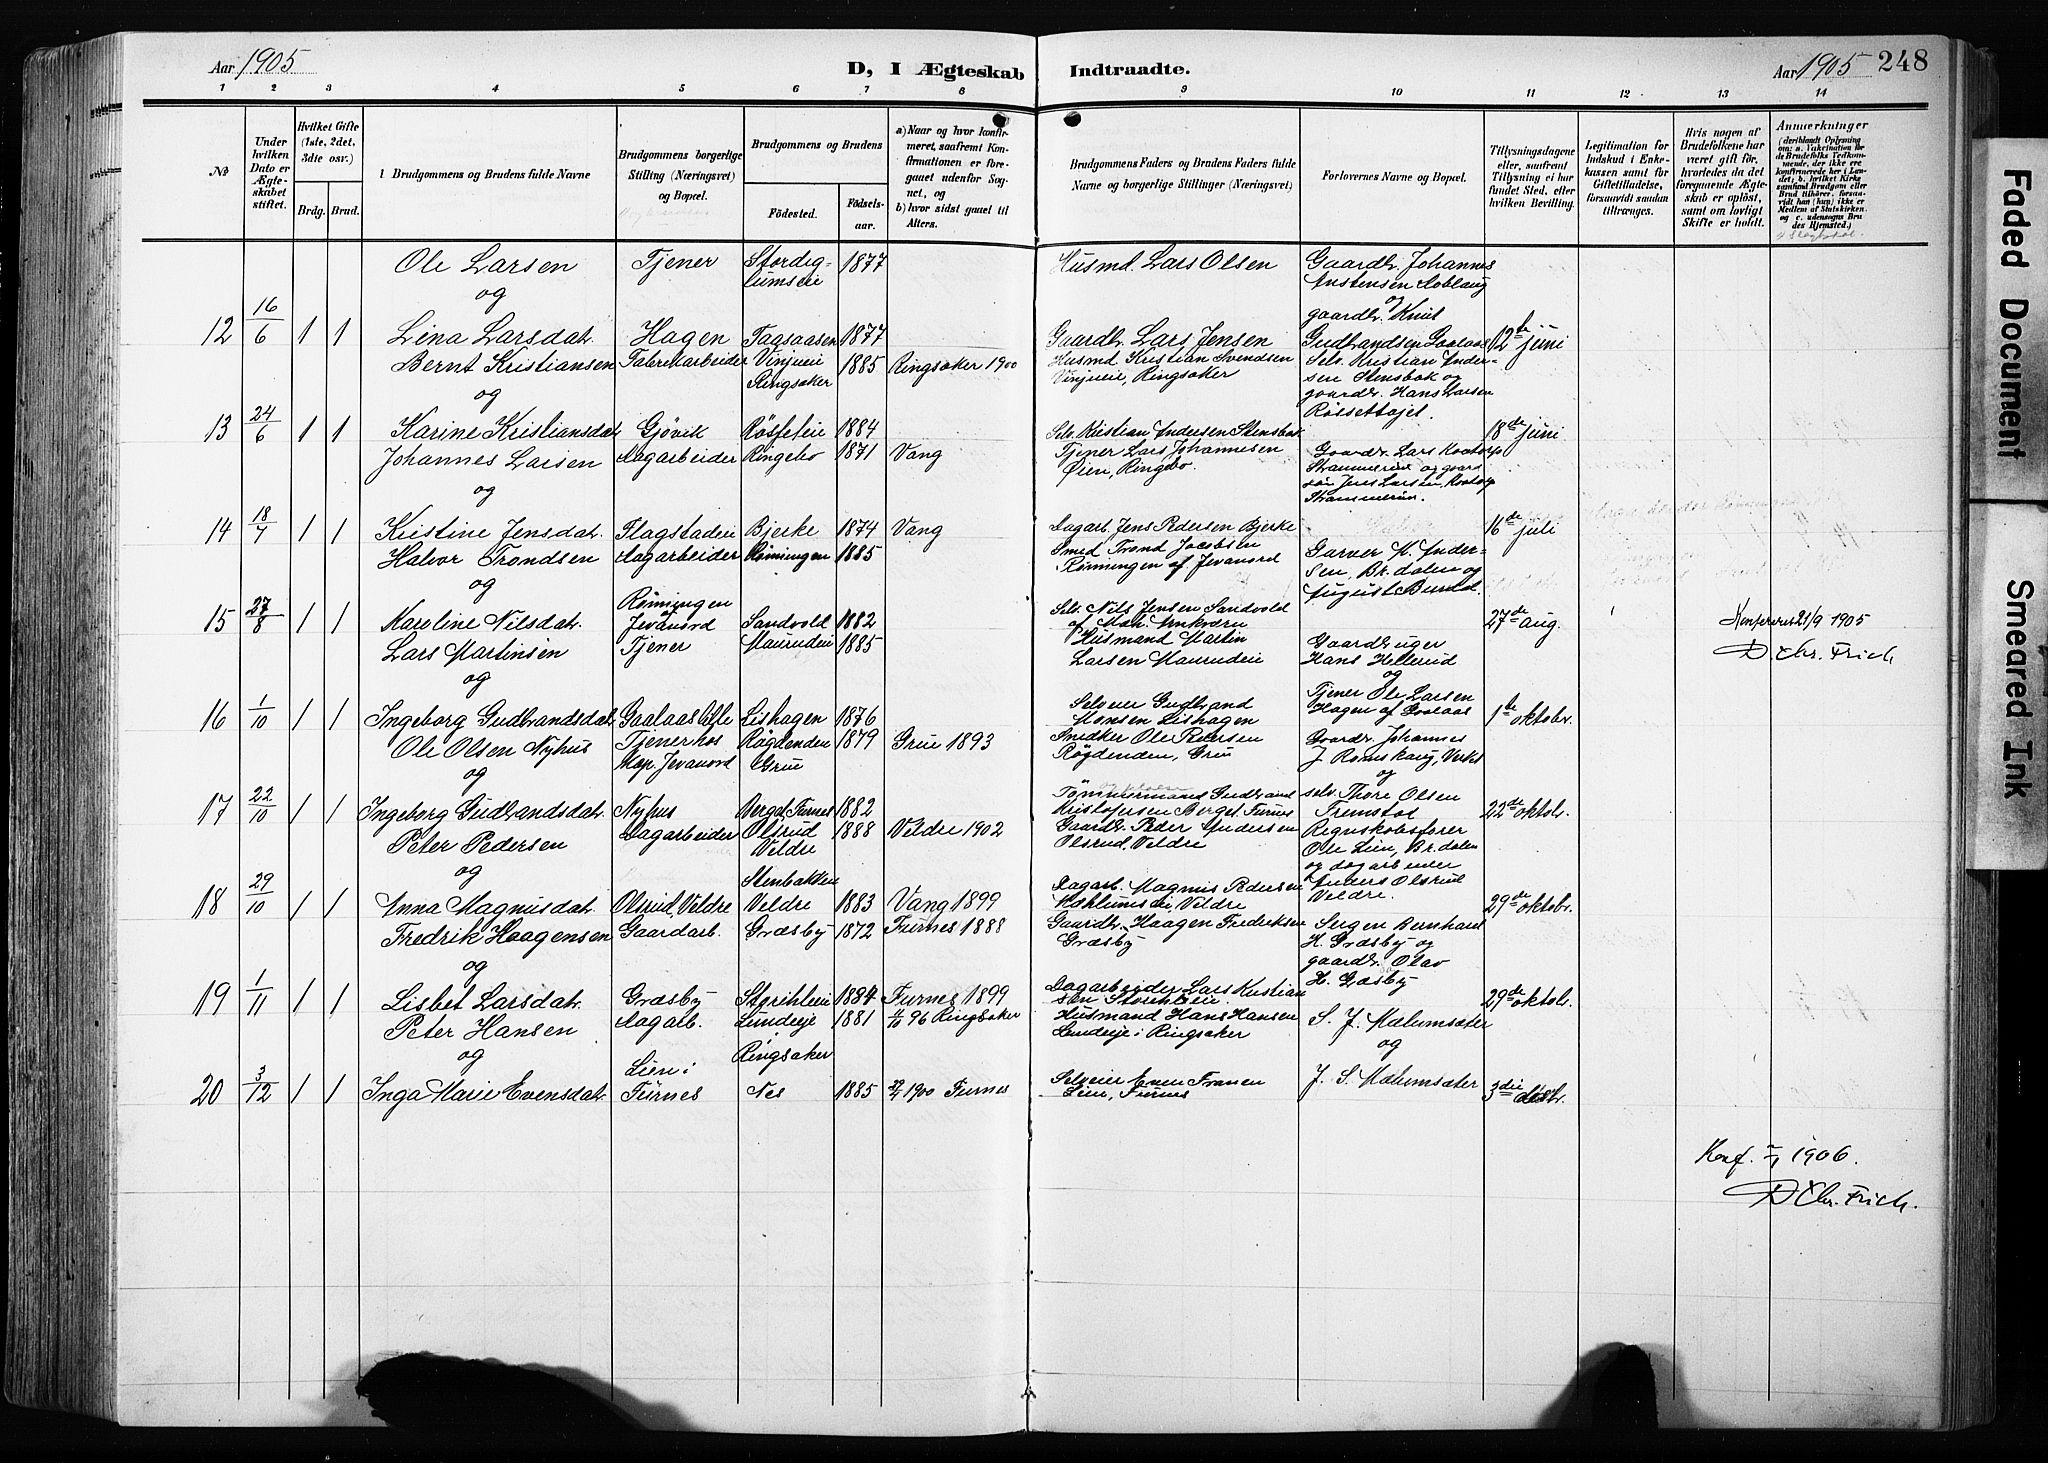 Aar 1905
D, I Ægteskab Indtraadte.
Aar 1905 248
1 2 3 4 5 6 7 8 9 10 11 12 13 14
No
Under hvilken Dato er Ægteskabet stiftet.
Hvilket Gifte (1ste, 2det, 3die osv.)
Brdg. Brud.
Brudgommens og Brudens fulde Navne
Brudgommens borgerlige Stilling (Næringsvei) og Bopæl.
Brudgommens og Brudens
Fødested. Fødselsaar.
a) Naar og hvor konfirmeret, saafremt Konfirmationen er foregaaet udenfor Sognet, og
b) hvor sidst gaaet til Alters.
Brudgommens Faders og Brudens Faders fulde Navne og borgerlige Stillinger (Næringsvei)
Forlovernes Navne og Bopæl.
Tillysningsdagene eller, saafremt Tillysning ei har fundet Sted, efter hvilken Bevilling.
Legitimation for Indskud i Enkekassen samt for Giftetilladelse, forsaavidt saadan tiltrænges.
Hvis nogen af Brudefolkene har været gift før, hvorledes da det foregaaende Ægteskab er opløst, samt om lovligt Skifte er holdt.
Anmerkninger
(deriblandt Oplysning om: a. Vakcination for de Brudefolks Vedkommende, der ikke ere konfirmerede her i Landet; b. hvilket Kirkesamfund Brudgom eller Brud tilhører, forsaavidt han (hun) ikke er Medlem af Statskirken, og c. udensogns Brudes Hjemsted.)
Ole Larsen Tjener Stordiglumseie 1877 Husmd. Lars Olsen Gaardbr. Johannes
og
12 16/6 1 1 Lina Larsdat. Hagen Fagsaasen 1877 Gaardbr. Lars Jensen 12te juni
gaardbr. Knut
Bernt Kristiansen Fabrikarbeider Vinjueie Ringsaker 1885 Ringsaker 1900 Husmd Kristian Svendsen Vinjueie, Ringsaker Selv. Kristian Andersen Stensbak og gaardbr. Hans Larsen
og
13 24/6 1 1 Karine Kristiansdat. Gjøvik 1884 Selv. Kristian Andersen Stensbak 18de juni
Johannes Larsen Dagarbeider Ringebo 1871 Vang Tjener Lars Johannesen Øien, Ringebo
og
14 18/7 1 1 Kristine Jensdat. Flagstadeie Bjerke 1874 Vang Dagarb. Jens Pedersen Bjerke 16de juli
Halvor Trondsen Dagarbeider Rønningen 1885 Smed Trond Jacobsen Rønningen af Jevanord Garver K. Andersen, Br.dalen og
og
15 27/8 1 1 Karoline Nilsdat. Rønningen Jevanord Sandvold 1882 Selv. Nils Jensen Sandvold 27de aug.
Konfereret 21/9 1905
D. Chr. Frich
Lars Martinsen Tjener Maurudeie 1885 Husmand Martin Larsen Maurudeie Gaardbruger Hans Hellerud
og
16 1/10 1 1 Ingeborg Gudbrandsdat. Lishagen 1876 Selveier Gudbrand Monsen Lishagen Tjener Ole Larsen Hagen af Gaalaas 1ste oktobr.
Ole Olsen Nyhus Tjener hos Kap. Jevanord Røgdenden Grue 1879 Grue 1893 Snidker Ole Persen Røgdenden, Grue Gaardbr. Johannes J. Romskaug, Verket
og
17 22/10 1 1 Ingeborg Gudbrandsdat. Nyhus Berget, Furnes 1882 Tømmermand Gudbrand Kristofersen Berget, Furnes selv. Thore Olsen 22de oktobr.
Peter Pedersen Dagarbeider Olsrud Veldre 1888 Veldre 1902 Gaardbr. Peder Andersen Olsrud, Veldre Regnskabsfører Ole Lien, Br.dalen og dagarbeider Anders Olsrud Veldre.
og
18 29/10 1 1 Anna Magnusdat. Olsrud, Veldre Stenbakken Veldre 1883 Vang 1899 Dagarb. Magnus Pedersen 29de oktobr.
Fredrik Haagensen Gaardarb. Græsby 1872 Furnes 1888 Gaardbr. Haagen Frederiksen Græsby Bernhard H. Græsby og gaardbr. Olav H. Græsby
og
19 1/11 1 1 Lisbet Larsdat. Græsby 1884 Furnes 1899 Dagarbeider Lars Kristiansen 29de oktobr.
Peter Hansen Dagarb. Lundeeje Ringsaker 1881 4/10 96 Ringsaker Husmand Hans Hansen Lundeeje i Ringsaker S. J. Mælumsæter
og
20 3/12 1 1 Inga Marie Evensdat. Lien i Furnes Nes 1885 1900 Furnes Selveier Even Fransen Lien, Furnes J. S. Mælumsæter 3die desbr.
Konf. 1906.
D Chr. Frich.
Faded Document
Smeared Ink